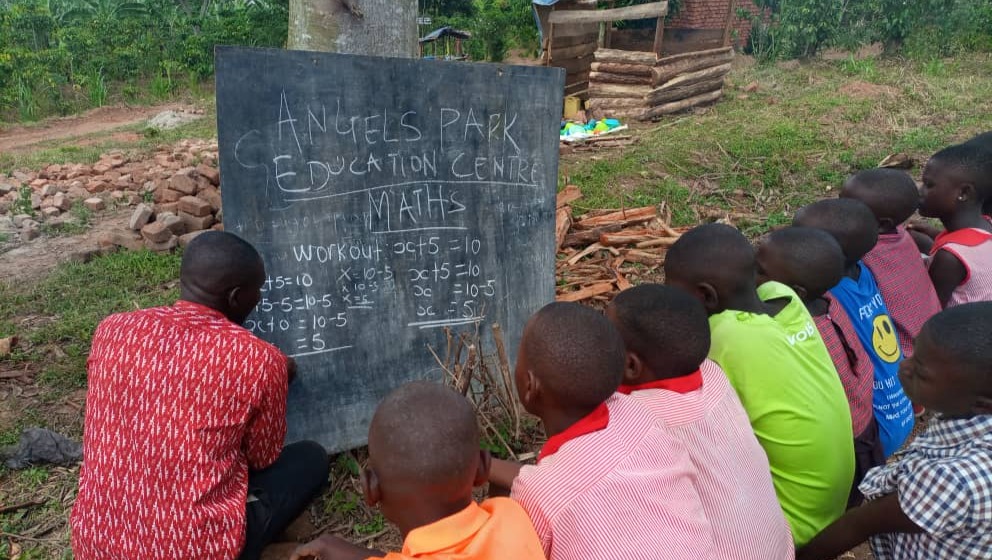 ANGELS PARK
EDUCATION CENTRE
MATHS
Workout x+5=10
+5=10
5-5=10-5
x+0=10-5
=5
x=10-5
x=5
x+5=10
x =10-5
=5
YOU HIT